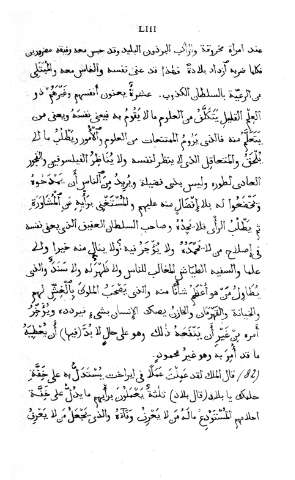 LIII
عند امرأة مخزوقة والراكب البرذون البليد وقد حبس معه رفيقه مقرورين
فكلما ضربه ازداد بلادة فهذا قد عنى نفسه والناس معه والمبتلى
من الرعيّة بالسلطان الكذوب، عشرة يعنون أنفسهم وغيرهم ذو
العلم القليل يتكلّف من العلوم ما لا يقوم به فيعنى نفسه ويعنى من
يتعلّم منه فالذى يروم الممتنعات من العلوم والأمور ويطلب ما لا
يُلحق والمتعاقل الذى لا ينظر لنفسه ولا يناظر الفيلسوف والمجر
العادى لطوره وليس بذى فضيلة ويريد من الناس أن يمدحوه
ويخضعوا له بلا إفضال منه عليهم والمستغنى برأيه عن المشاورة
ثم يطلب الرأى فلا يجده وصاحب السلطان العفيف الذى يعنى نفسه
فى إصلاح من لا يحمده ولا يؤجر فيه ولا ينال منه خيرا ولا
علما والسفيه الطيّاش المغالب للناس ولا ظهر له ولا سند والذى
يطاول من هو أعظم شأنًا منه والذى يصحب الملوك بالغش لهم
والخيانة والقهرمان والخازن يصدّ الإنسان بشىء فيردده ويؤخّر
أمره من غير أن ينفعه ذلك وهو على حال لا بدّ (فيها) أن يعطيه
ما قد أمر به وهو غير محمود،
(82) قال الملك لقد عملت عملا فى ايراخت يستدلّ به على خفّة
حلمك يا بلاد (قال بلاد) ثلثة يعملون برأيهم ما يدلّ على خفّة
احلامهم المستودع ماله من لا يعرف وفآءه والذى يجعل من لا يعرف